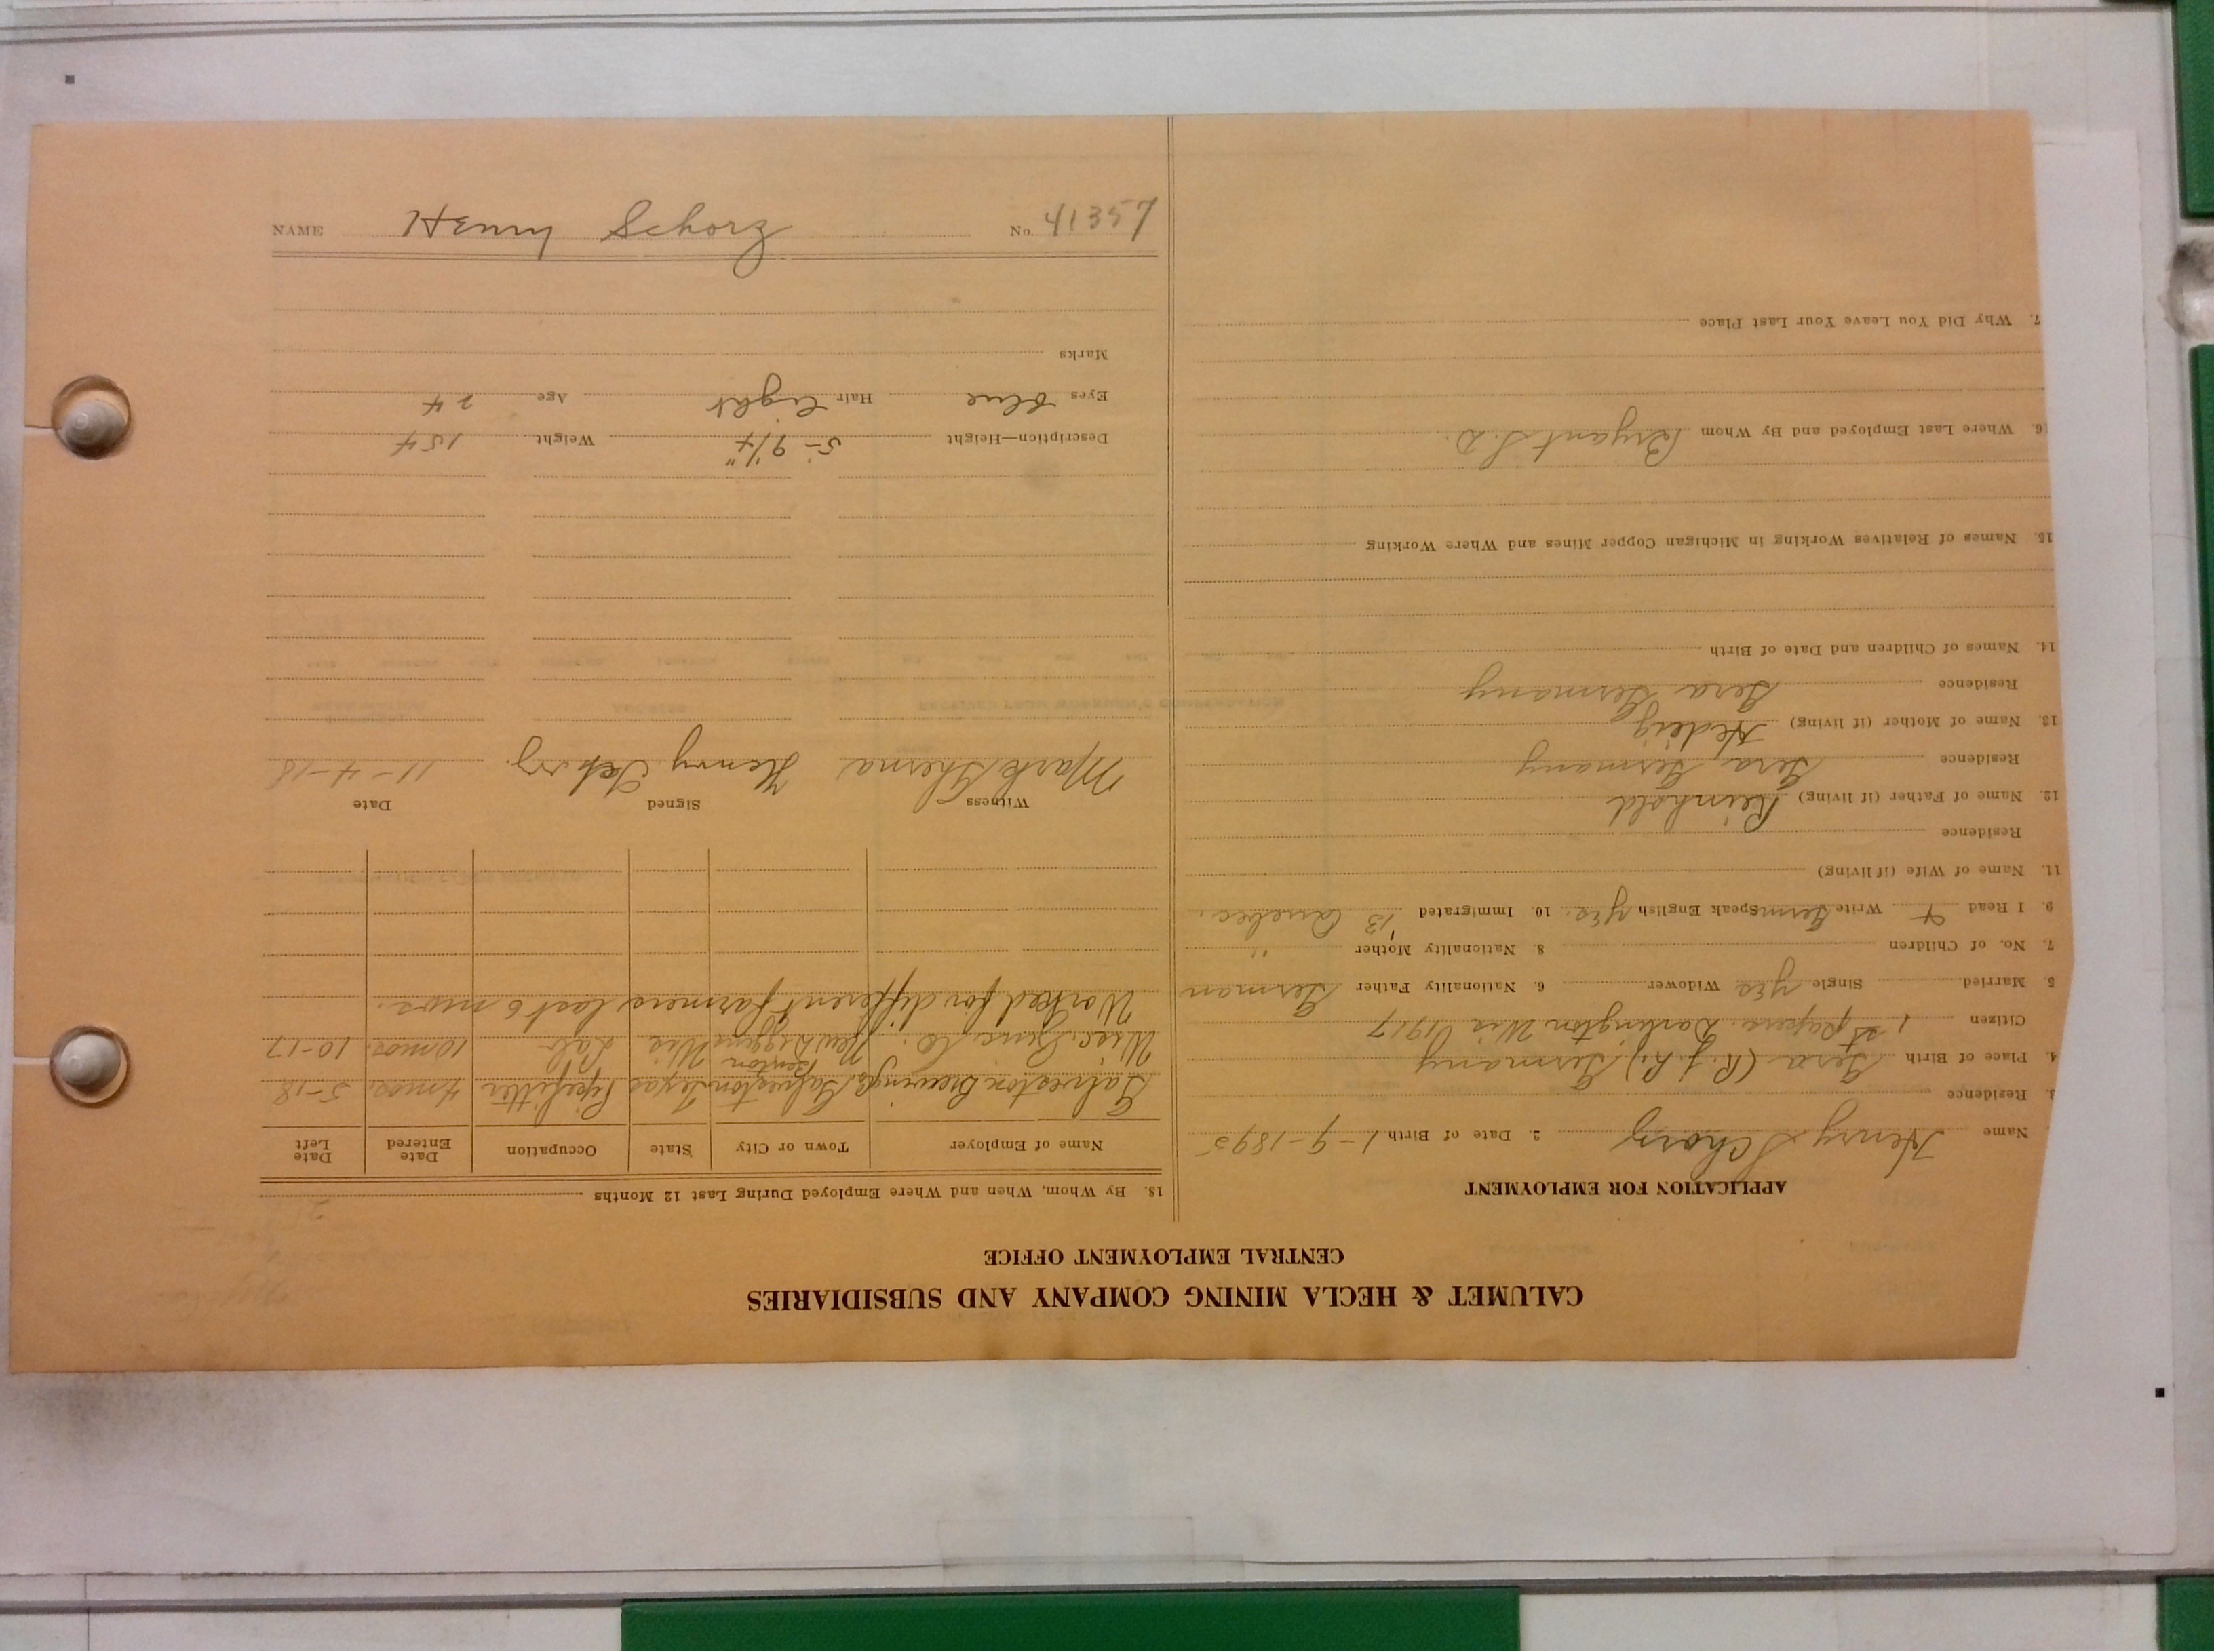 NAME Henry Schorz No. 41357
CALUMET & HECLA MINING COMPANY AND SUBSIDIARIES
CENTRAL EMPLOYMENT OFFICE
APPLICATION FOR EMPLOYMENT
Name Henry Schorz 2. Date of Birth 1-9-1895
3. Residence
4. Place of Birth Gera (R.j.L.) Germany
Citizen 1st papers. Darlington Wis 1917
5. Married Single yes Widower 6. Nationality Father German
7. No. of Children 8. Nationality Mother "
9. I Read & Write Germ Speak English yes. 10. Immigrated '13 Quebec.
11. Name of Wife (if living)
Residence
12. Name of Father (if living) Reinhold
Residence Gera, Germany
13. Name of Mother (if living) Hedeig
Residence Gera Germany
14. Names of Children and Date of Birth
15. Names of Relatives Working in Michigan Copper Mines and Where Working
16. Where Last Employed and By Whom Bryant S.D.
7. Why Did You Leave Your Last Place
18. By Whom, When and Where Employed During Last 12 Months
Name of Employer Town or City State Occupation Date Entered Date Left
Galveston Brewing Galveston Texas Pipefitter 4 mos. 5-18
Benton
Wisc. Zinc Co. New Diggens Wis Lab 10 mos. 10-17
Worked for different farmers last 6 mos.
Witness Signed Date
Mark Henry Schorz 11-4-18
Description—Height 5- 9 1/4" Weight 154
Eyes blue Hair light Age 24
Marks